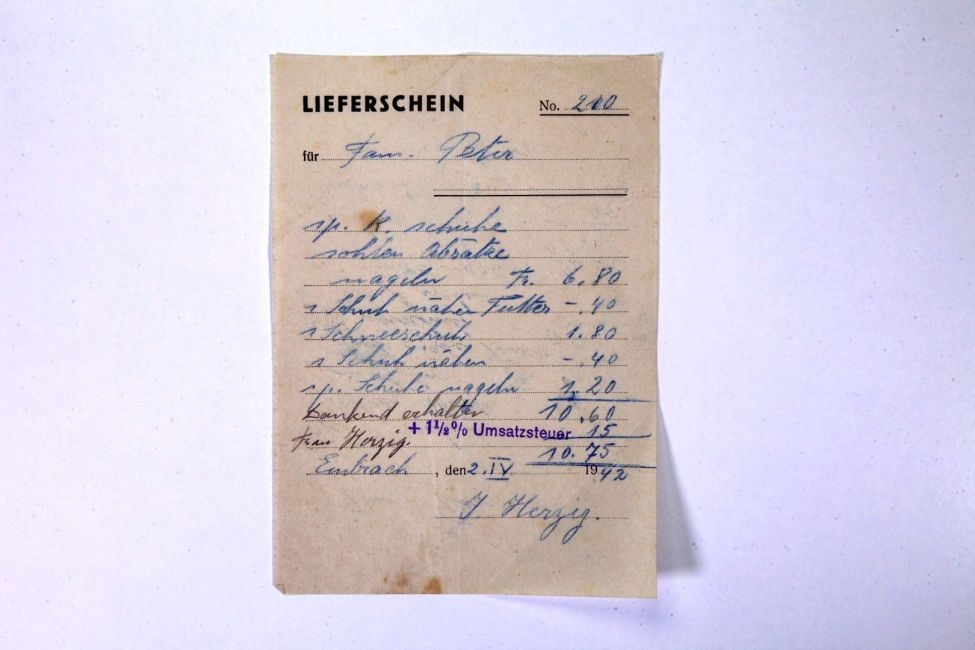 LIEFERSCHEIN No. 210
für Fam. Peter
1 p. K. schuhe
sohlen Absätze
nageln Fr. 6.80
1 Schuh nähen Futter -.40
1 Schneeschuh 1.80
1 Schuh nähen -.40
1 p. Schuhe nageln 1.20
Dankend erhalten 10.60
+ 1½% Umsatzsteuer 15
Frau Herzig. 10.75
Embrach, den 2. IV 1942
J. Herzig.